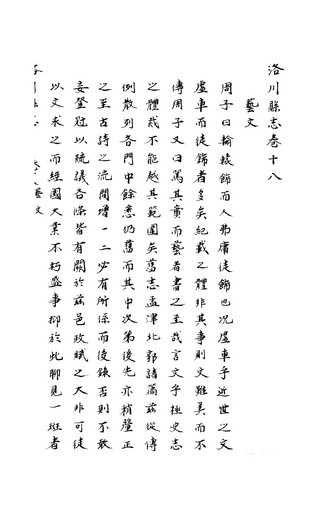 洛川縣志卷十八
藝文
周子曰輪轅飾而人弗庸徒飾也况虛車乎近世之文
虛車而徒飾者多矣紀載之體非其事則文雖美而不
傳周子又曰篤其實而藝者書之至哉言文乎極史志
之體哉不能越其範圍矣舊志孟津北郭諸篇前從傳
例散列各門中餘悉仍舊而其中次第後先亦稍釐正
之至古詩之流間增一二必有所係而後錄否則不敢
妄登冠以疏議各條皆有關於茲邑政賦之大非可徒
以文求之而經國大業不朽盛事抑於此聊見一斑者
洛川縣志 卷 藝文